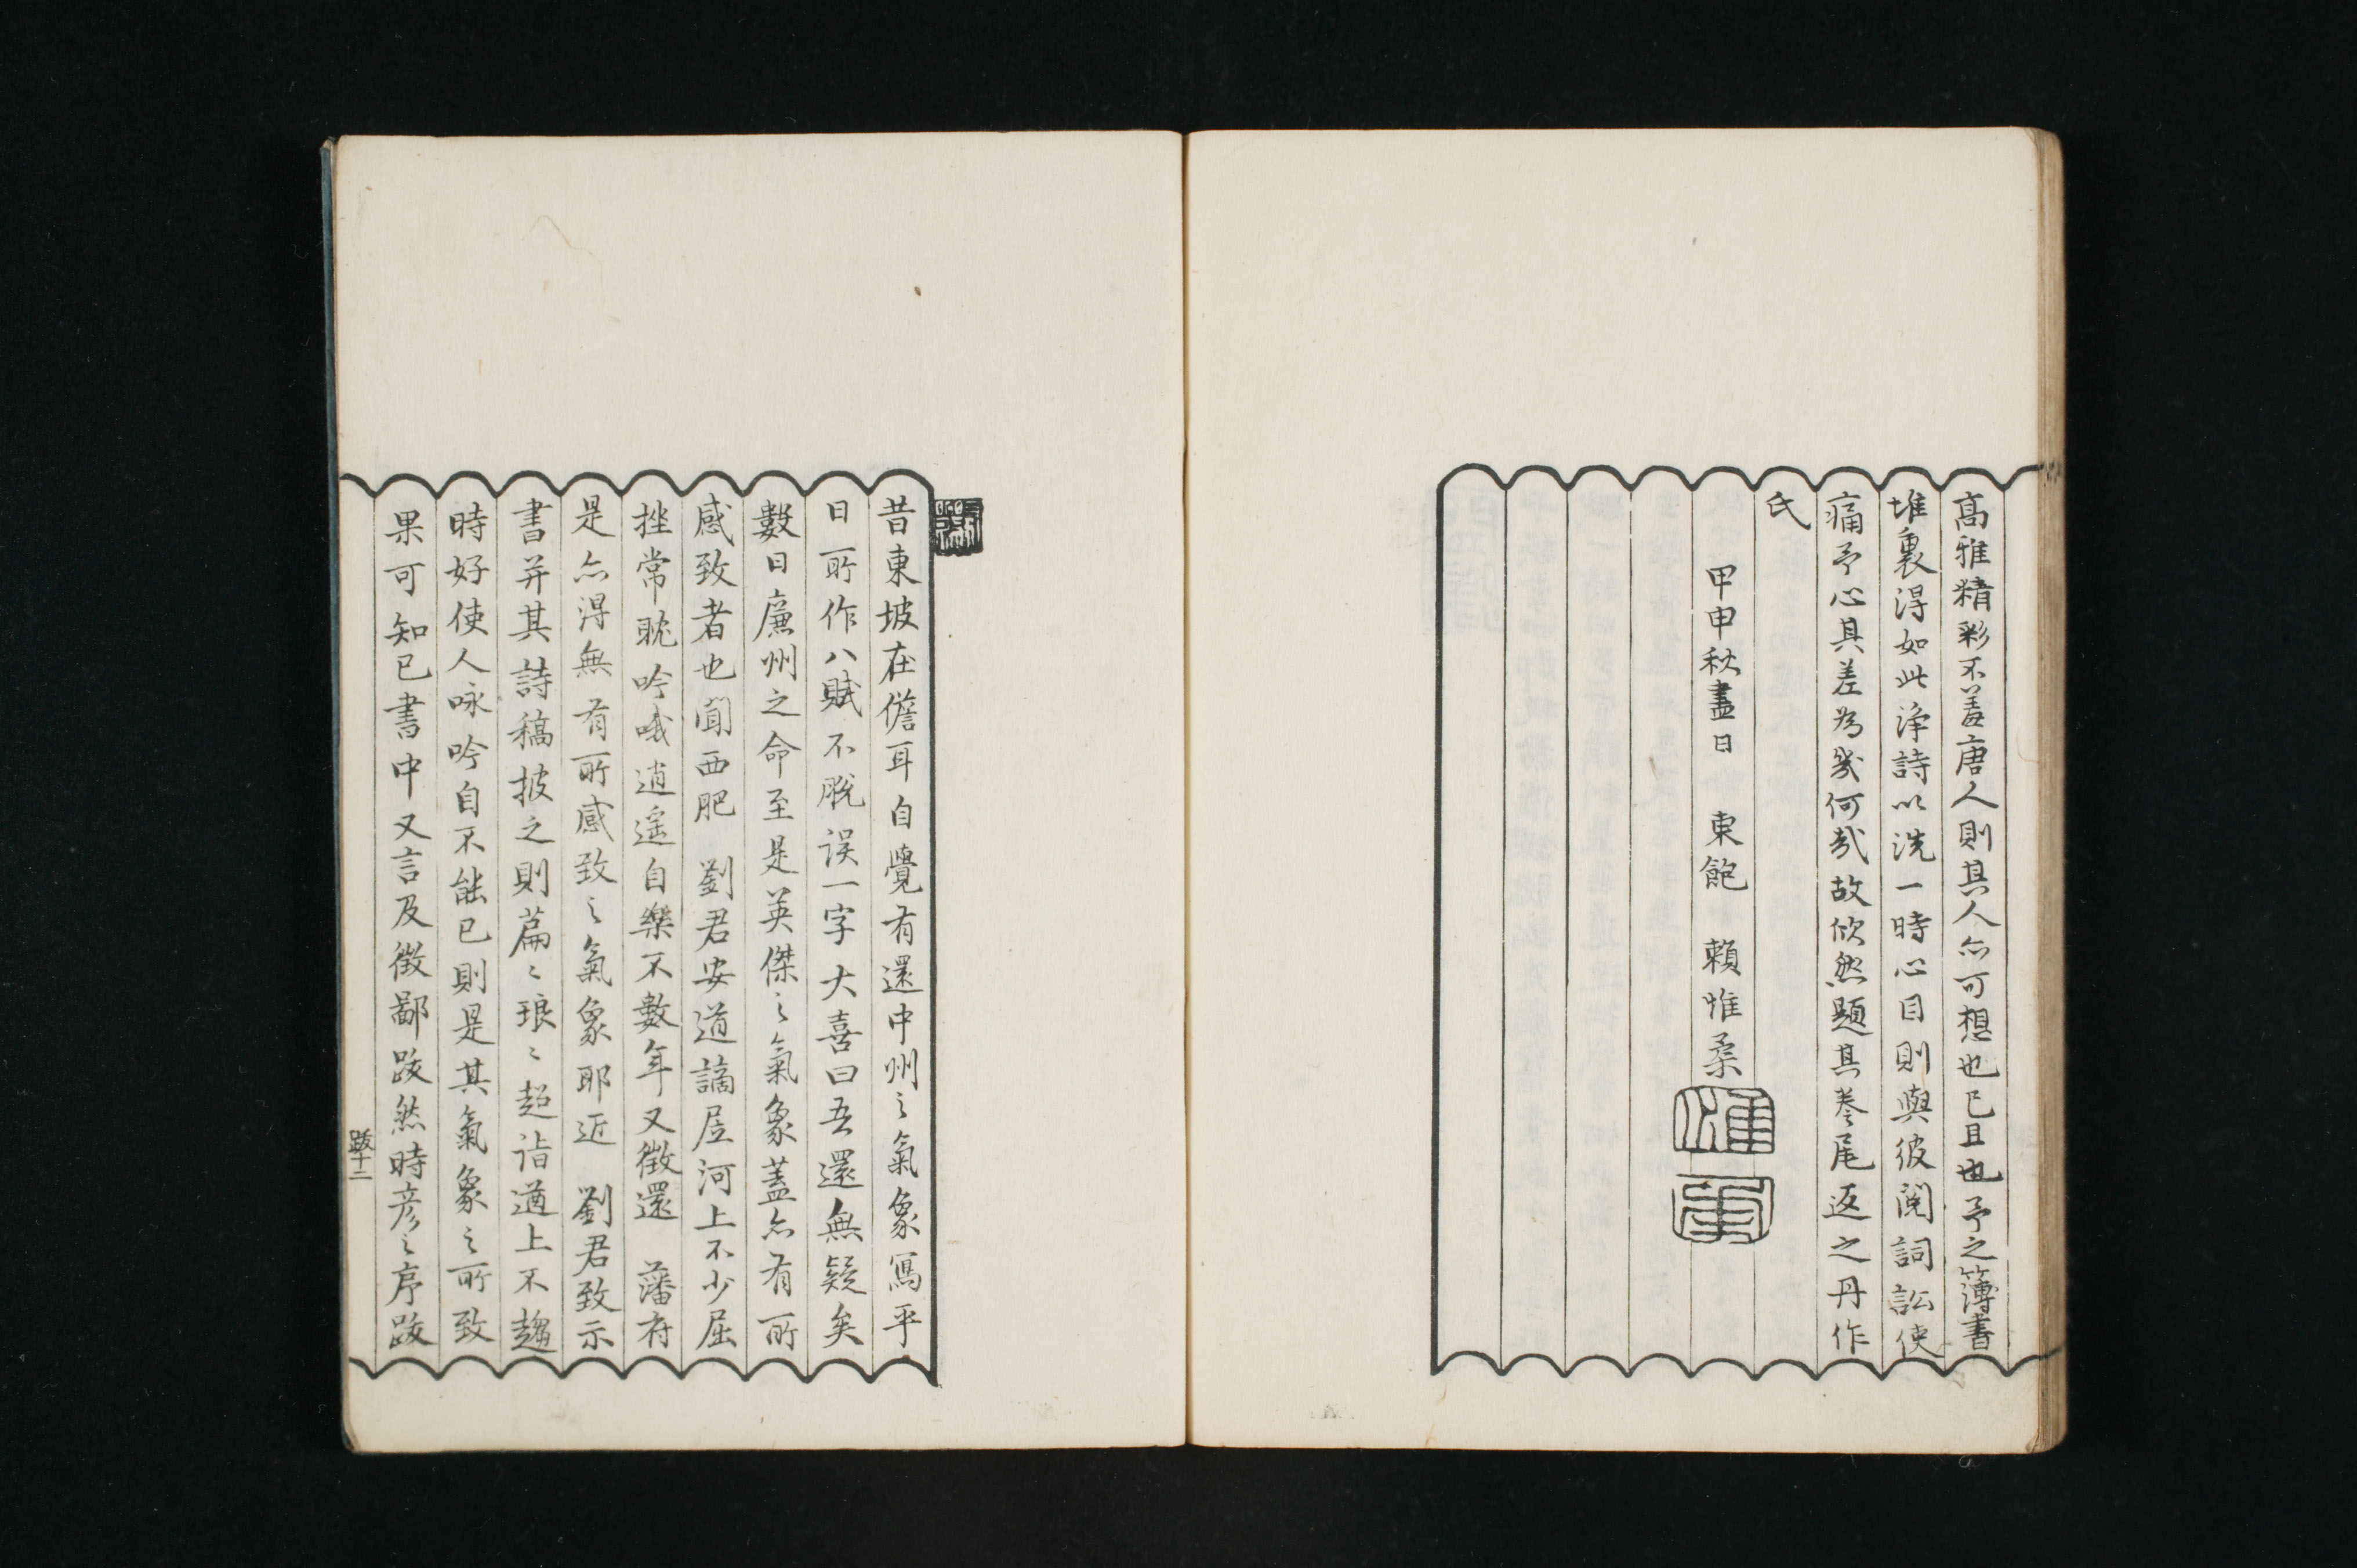 高雅精彩不羞唐人則其人亦可想也已且也予之簿書
堆裏得如此浄詩以洗一時心目則與彼閱詞訟使
痛予心其差為幾何哉故欣然題其巻尾返之丹作
氏
甲申秋盡日 東飽 賴惟柔
惟柔
昔東坡在儋耳自覺有還中州之氣象寫平
日所作八賦不脱误一字大喜曰吾還無疑矣
數日廉州之命至是英傑之氣象蓋亦有所
感致者也聞西肥 劉君安道謫居河上不少屈
挫常耽吟哦逍遥自樂不數年又徵還 藩府
是亦得無有所感致之氣象耶近 劉君致示
書并其詩稿披之則篇〻琅〻超詣遒上不趨
時好使人咏吟自不能已則是其氣象之所致
果可知已書中又言及徴鄙跋然時彦之序跋
跋十二